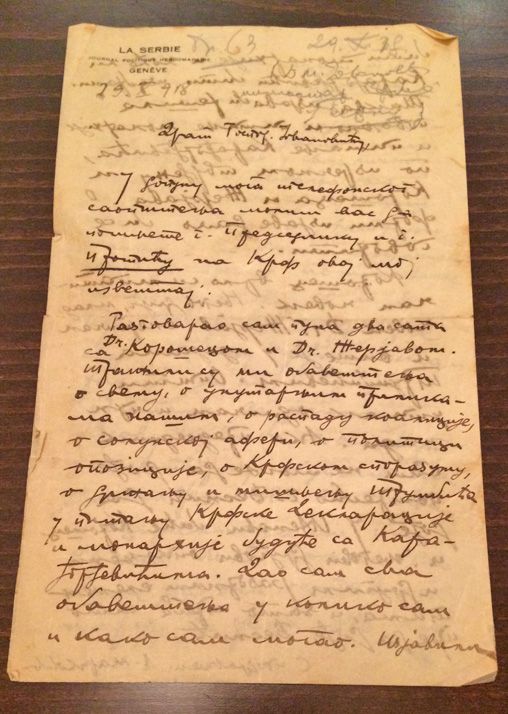 LA SERBIE
JOURNAL POLITIQUE HEBDOMADAIRE
GENÈVE
63
29. X. 18.
29. X 918
Драги Госпо. Јовановићу,
У додатку мога телефонског
саопштења молим вас да
пошљете г. Председнику и г.
Протићу на Крф овај мој
извештај:
Разговарао сам пуна два сата
са Dr. Корошецом и Dr. Жерјавом.
Тражили су ми обавештења
о свему, о унутарњим прилика-
ма нашим, о распаду коалиције,
о солунској афери, о политици
опозиције, о Крфском споразуму,
о држању и мишљењу Трумбића
у питању Крфске Декларације
и монархије будуће са Кара-
ђорђевићима. Дао сам сва
обавештења у колико сам
и како сам могао. Изјавили